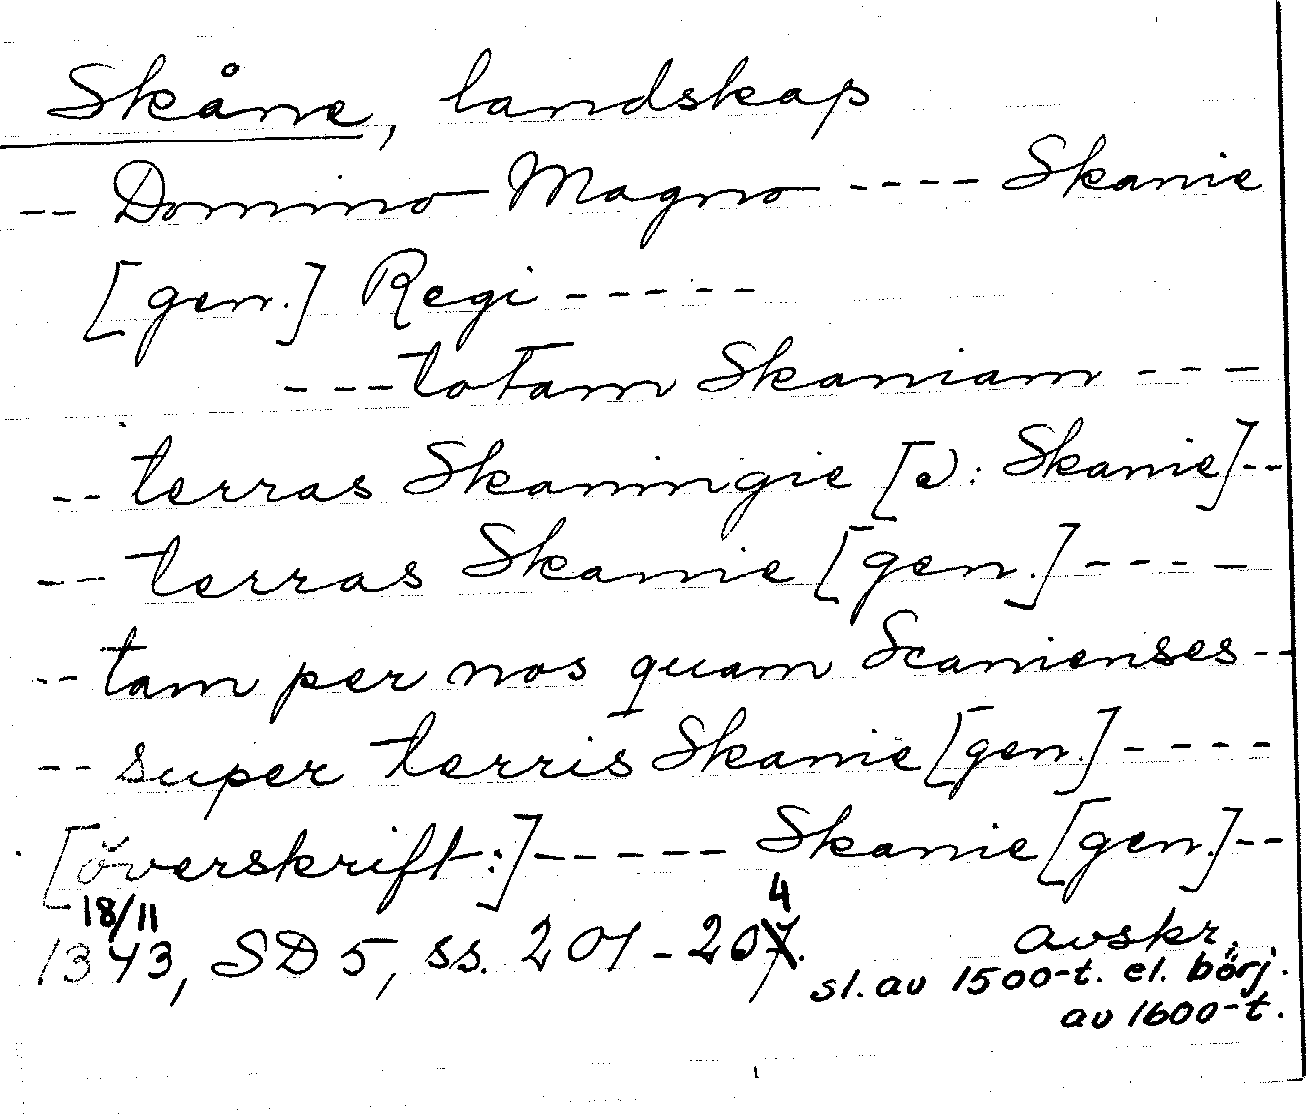 Skåne, landskap
-- Domino Magno ---- Skanie
[gen.] Regi -----
--- totam Skaniam ---
-- terras Skaningie [ɔ: Skanie] --
-- terras Skanie [gen.] ----
-- tam per nos quam Scanienses --
-- super terris Skanie [gen.] ----
[överskrift:] ----- Skanie [gen.] --
18/11
1343, SD 5, ss. 201-204. avskr.
sl. av 1500-t. el. börj.
av 1600-t.